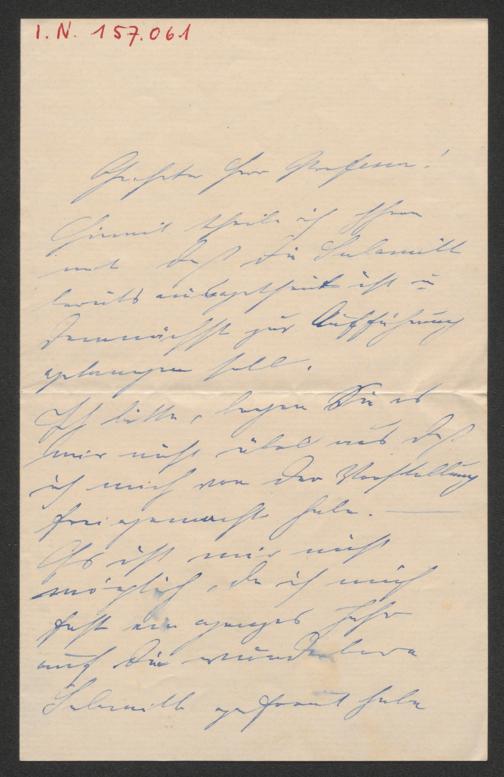 I. N. 157.061
Geehrter Herr Professor!
Hiermit theile ich Ihnen
mit daß die Sulamith
bereits ausgetheilt ist u
demnächst zur Aufführung
gelangen soll.
Ich bitte, legen Sie es
mir nicht übel aus daß
ich mich von der Vorstellung
frei gemacht habe. —
Es ist mir nicht
möglich, da ich mich
fast ein ganzes Jahr
auf die wunderbare
Sulamith gefreut habe